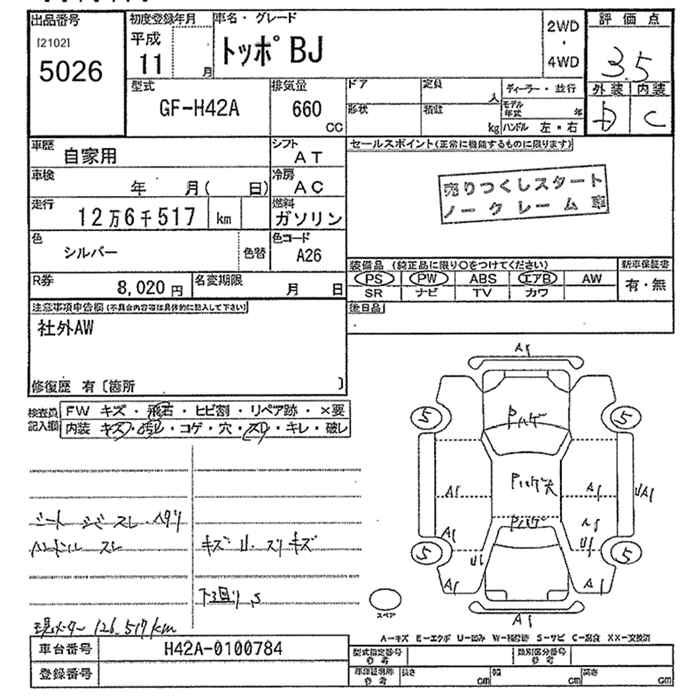 出品番号
[2102]
5026
初度登録年月
平成
11 月
車名・グレード
トッポBJ
2WD
・
4WD
評価点
3.5
外装 内装
D C
型式
GF-H42A
排気量
660
CC
ドア 定員 人
形状 積載 kg
ディーラー・並行
モデル年式 年
ハンドル 左・右
車歴
自家用
シフト
AT
車検
年 月( 日)
冷房
AC
走行
12万6千517 km
燃料
ガソリン
色
シルバー
色替
色コード
A26
R券
8,020円
名変期限
月 日
セールスポイント(正常に機能するものに限ります)
売りつくしスタート
ノークレーム
装備品 (純正品に限り○をつけてください)
PS PW ABS エアB AW
SR ナビ TV カワ
新車保証書
有・無
後日品
注意事項申告欄(不具合内容等は具体的に記入して下さい)
社外AW
修復歴 有〔箇所 〕
検査員記入欄
FW キズ・飛石・ヒビ割・リペア跡・×要
内装 キズ・汚レ・コゲ・穴・スレ・キレ・破レ
シート シミ スレ ヘタリ
ハンドル スレ
キズ U スリキズ
下廻り S
現メーター 126,517km
A1
5
5
Pハゲ
Pハゲ大
Pハゲ
A1
A1
UA1
A1
A1
U1
U1
5
5
A1
A1
A1
スペア
A-キズ E-エクボ U-凹み W-補修跡 S-サビ C-腐食 XX-交換済
車台番号
H42A-0100784
登録番号
型式指定番号 参考
類別区分番号 参考
車検証明記 参考
長さ cm 幅 cm 高さ cm